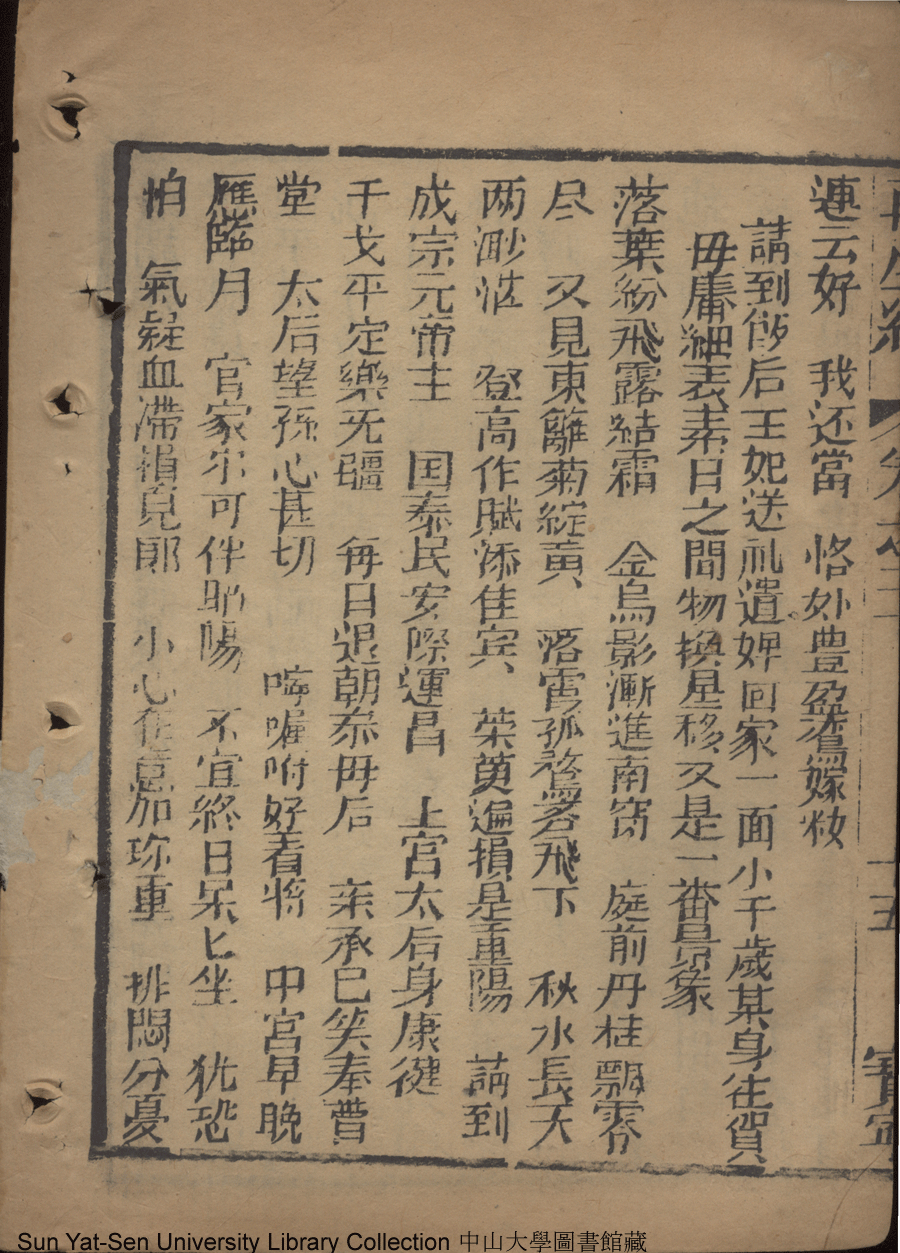 連云好　我还當　恪外豊盈備嫁妝
講到俻后王妃送礼遣婢回家一面小千歲某身往賀
毋庸細表素日之間物換星移又是一番景象
落葉紛飛露結霜　金烏影漸進南窓　庭前丹桂飄零
尽　又見東籬菊綻黄　落霄孤鶩畧飛下　秋水長天
两渺茫　登高作賦添佳宾　茱萸遍損是重陽　講到
成宗元帝主　囯泰民安際運昌　上宫太后身康徤
干戈平定樂无疆　每日退朝叅母后　亲承巳笑奉萱
堂　太后望孫心甚切　嘱咐好看将　中宮早晚
應臨月　官家尔可伴昭陽　不宜終日呆匕坐　犹恐
怕　氣疑血滞損児郎　小心在意加珍重　排悶分憂
十五
Sun Yat-Sen University Library Collection 中山大學圖書館藏